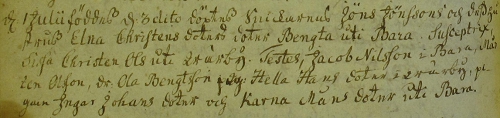 1 Julii föddes d. 3 dito döptes Spickarnes Jöns Jönssons och dess
hustrus Elna Christens doter doter Bengta uti Bara. Susceptrix
Sissa Christen Ols uti Erarby. Testes, Jacob Nilsson i Bara, Mår
ten Olson, dr. Ola Bengtson Hella Hans doter i Erarby, pi
gan Ingar Johans doter och Karna Måns doter uti Bara.